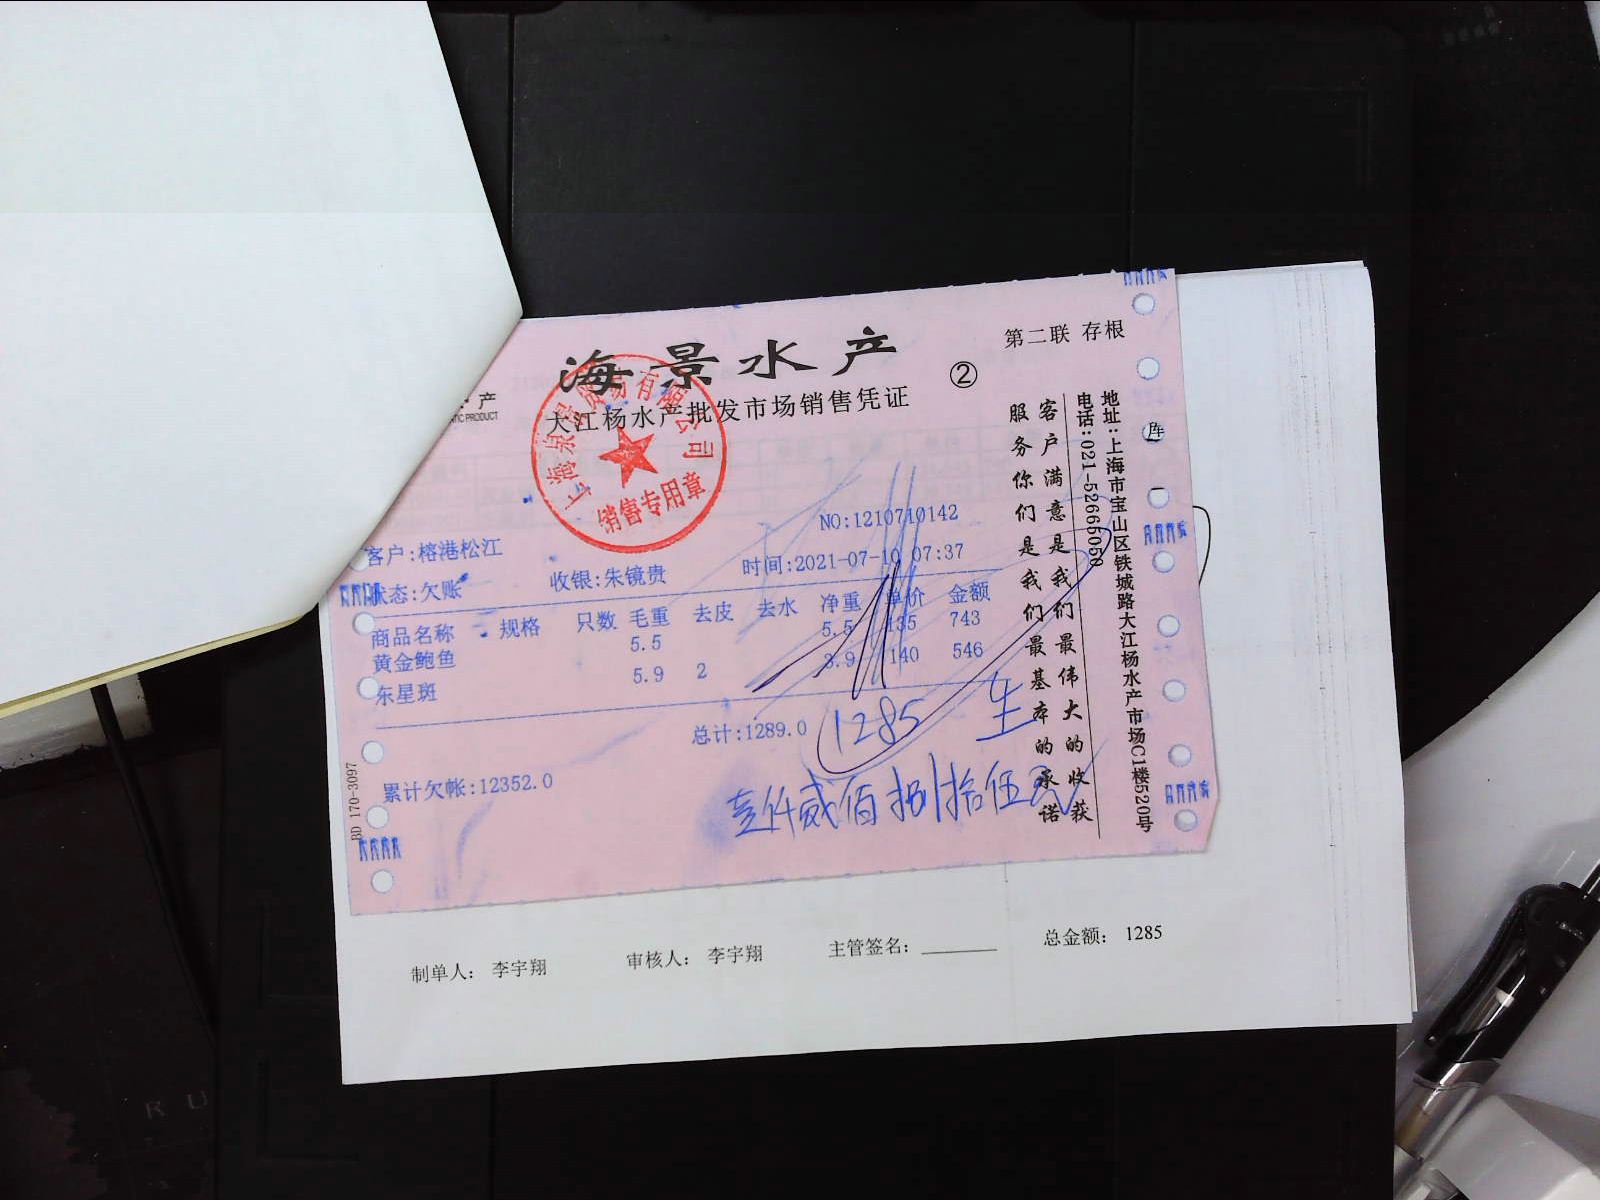 海景水产
第二联 存根
②
大江杨水产批发市场销售凭证
产
TIC PRODUCT
上海泉景贸易有限公司
销售专用章
库
NO:1210710142
客户:榕港松江
收银:朱镜贵
时间:2021-07-10 07:37
状态:欠账
商品名称 规格 只数 毛重 去皮 去水 净重 单价 金额
黄金鲍鱼 5.5 5.5 135 743
东星斑 5.9 2 3.9 140 546
总计:1289.0
1285
累计欠帐:12352.0
壹仟贰佰捌拾伍元
BD 170-3097
客户满意是我们最伟大的收获
服务你们是我们最基本的承诺
地址:上海市宝山区铁城路大江杨水产市场C1楼520号
电话:021-52665050
制单人: 李宇翔
审核人: 李宇翔
主管签名:
总金额: 1285